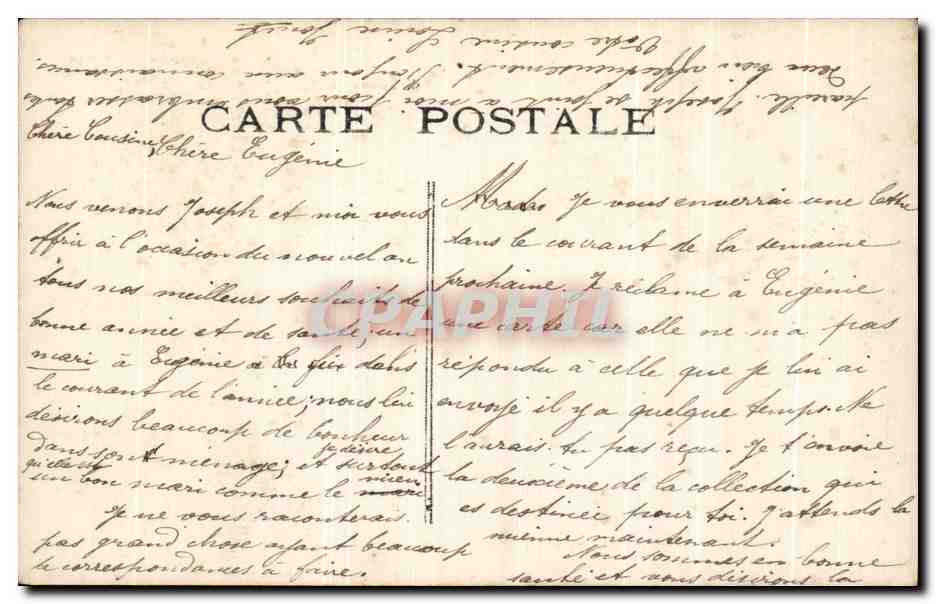 CARTE POSTALE
Chère Cousine, Chère Eugénie
Nous venons Joseph et moi vous
offrir à l'occasion du nouvel an
tous nos meilleurs souhaits de
bonne année et de santé, un
mari à Eugénie dans
le courant de l'année; nous lui
désirons beaucoup de bonheur
dans son ménage; et je désire surtout
qu'elle ait un bon mari comme le mien
Je ne vous raconterais
pas grand chose ayant beaucoup
de correspondances à faire.
Je vous enverrai une lettre
dans le courant de la semaine
prochaine. Je réclame à Eugénie
une carte car elle ne m'a pas
répondu à celle que je lui ai
envoyé il y a quelque temps. Ne
l'aurais tu pas reçu. Je t'envoie
la deuxième de la collection qui
es destinée pour toi. J'attends la
mienne maintenant.
Nous sommes en bonne
santé et vous désirons la
pareille. Joseph se joint à moi pour vous embrasser toutes
deux bien affectueusement. Bonjour aux connaissances.
Votre cousine Louise
CPAPHIL